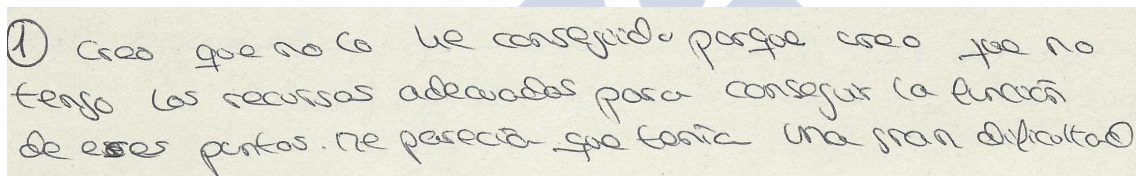 ① Creo que no lo he conseguido porque creo que no
tengo los recursos adecuados para conseguir la función
de esos puntos. Me parecía que tenía una gran dificultad